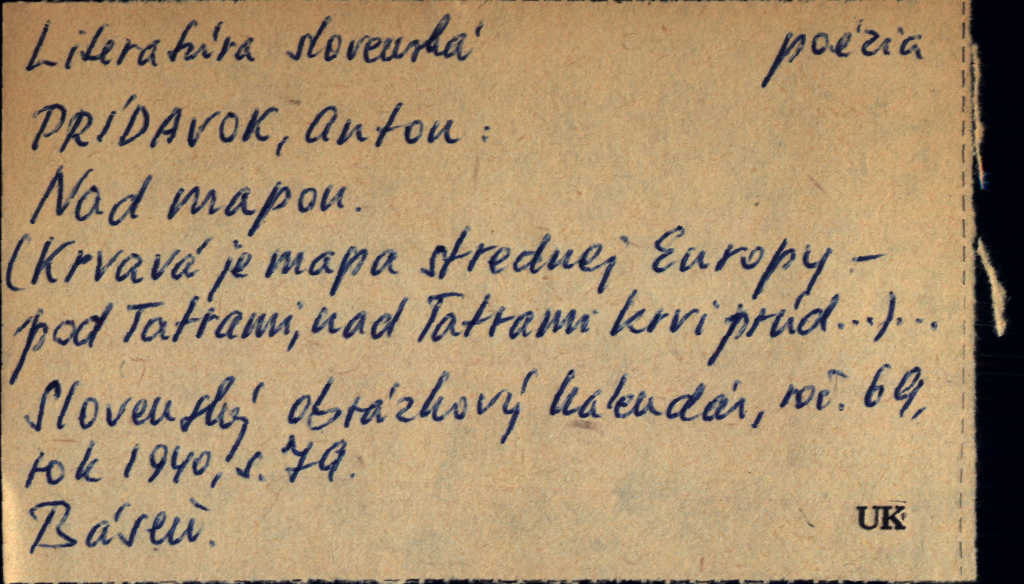 Literatúra slovenská poézia
PRÍDAVOK, Anton:
Nad mapou.
(Krvavá je mapa strednej Europy –
pod Tatrami, nad Tatrami krvi prúd...)...
Slovenský obrázkový kalendár, roč. 69,
rok 1940, s. 79.
Báseň.
UK